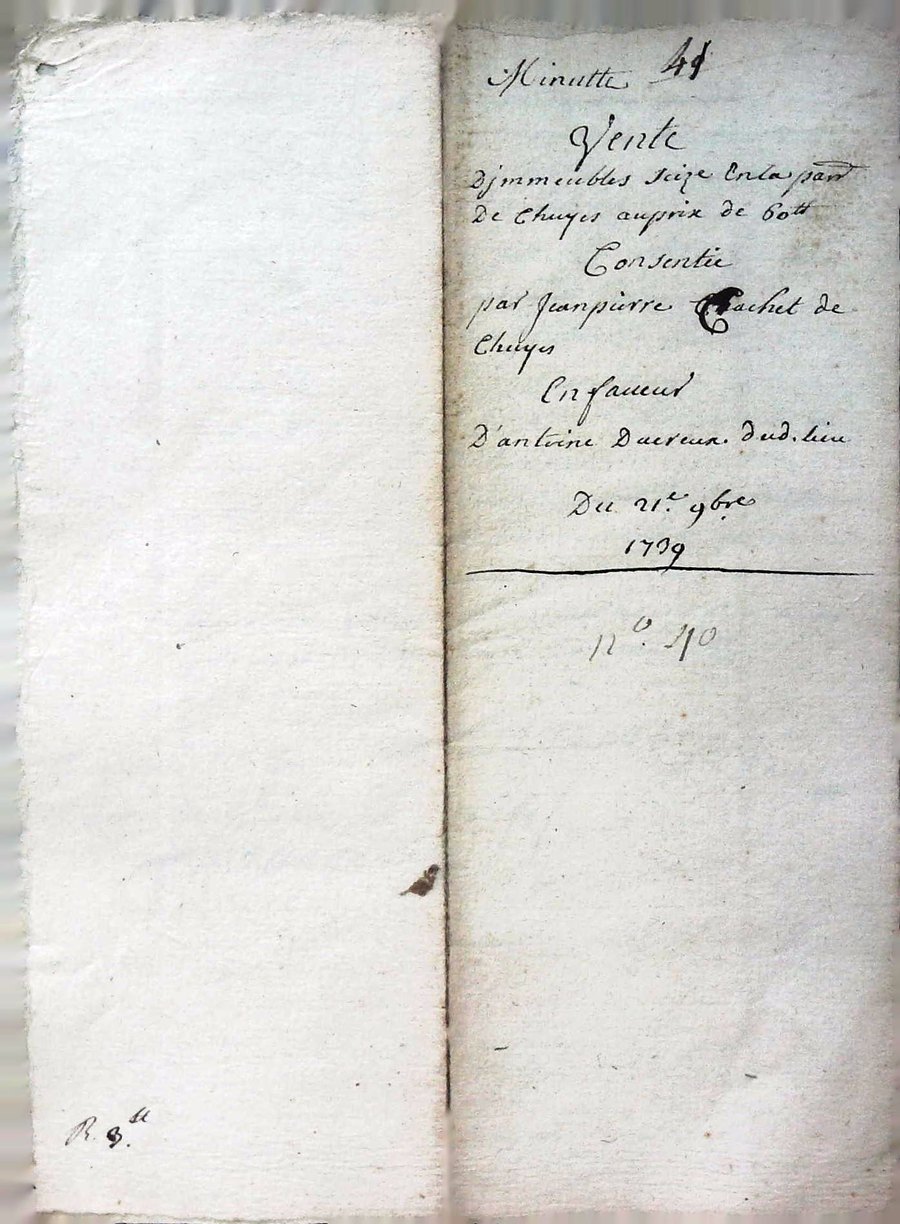 Minutte 41
Vente
D'jmmeubles seize En la parr
De Chuyes au prix de 60tt
Consentie
par Jeanpierre Crachet de
Chuyes
En faueur
D'antoine Ducreux dud. lieu
Du 21.e 9bre
1739
no. 40
R. 3.tt